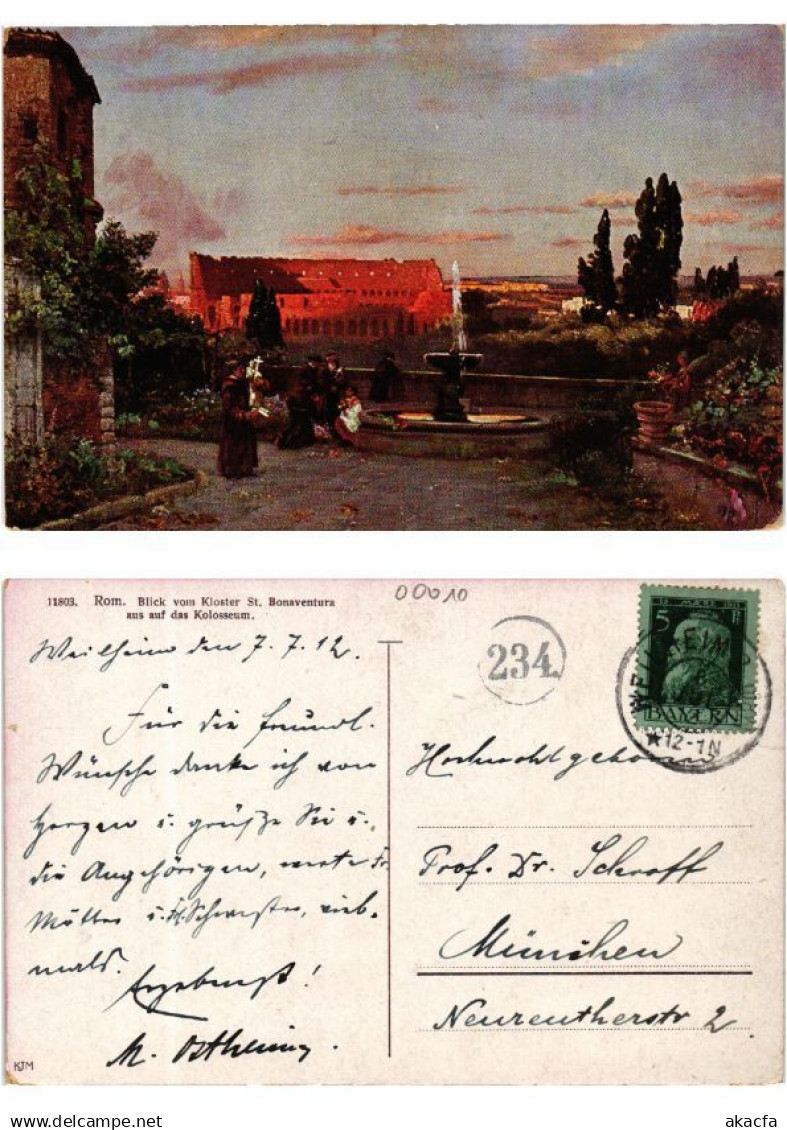 11803. Rom. Blick vom Kloster St. Bonaventura
aus auf das Kolosseum.
00010
234.
12. MÄRZ 1911
5 Pf.
BAYERN
WEILHEIM
*12-1N
Weilheim den 7.7.12.
Für die freundl.
Wünsche danke ich von
Herzen u. grüße Sie u.
die Angehörigen, werte Fr.
Mutter u. Frl. Schwester, viel-
mals.
Ergebenst!
M. Ostheimer.
Hochwohlgeboren
Prof. Dr. Schroff
München
Neureutherstr 2
KJM
akacfa